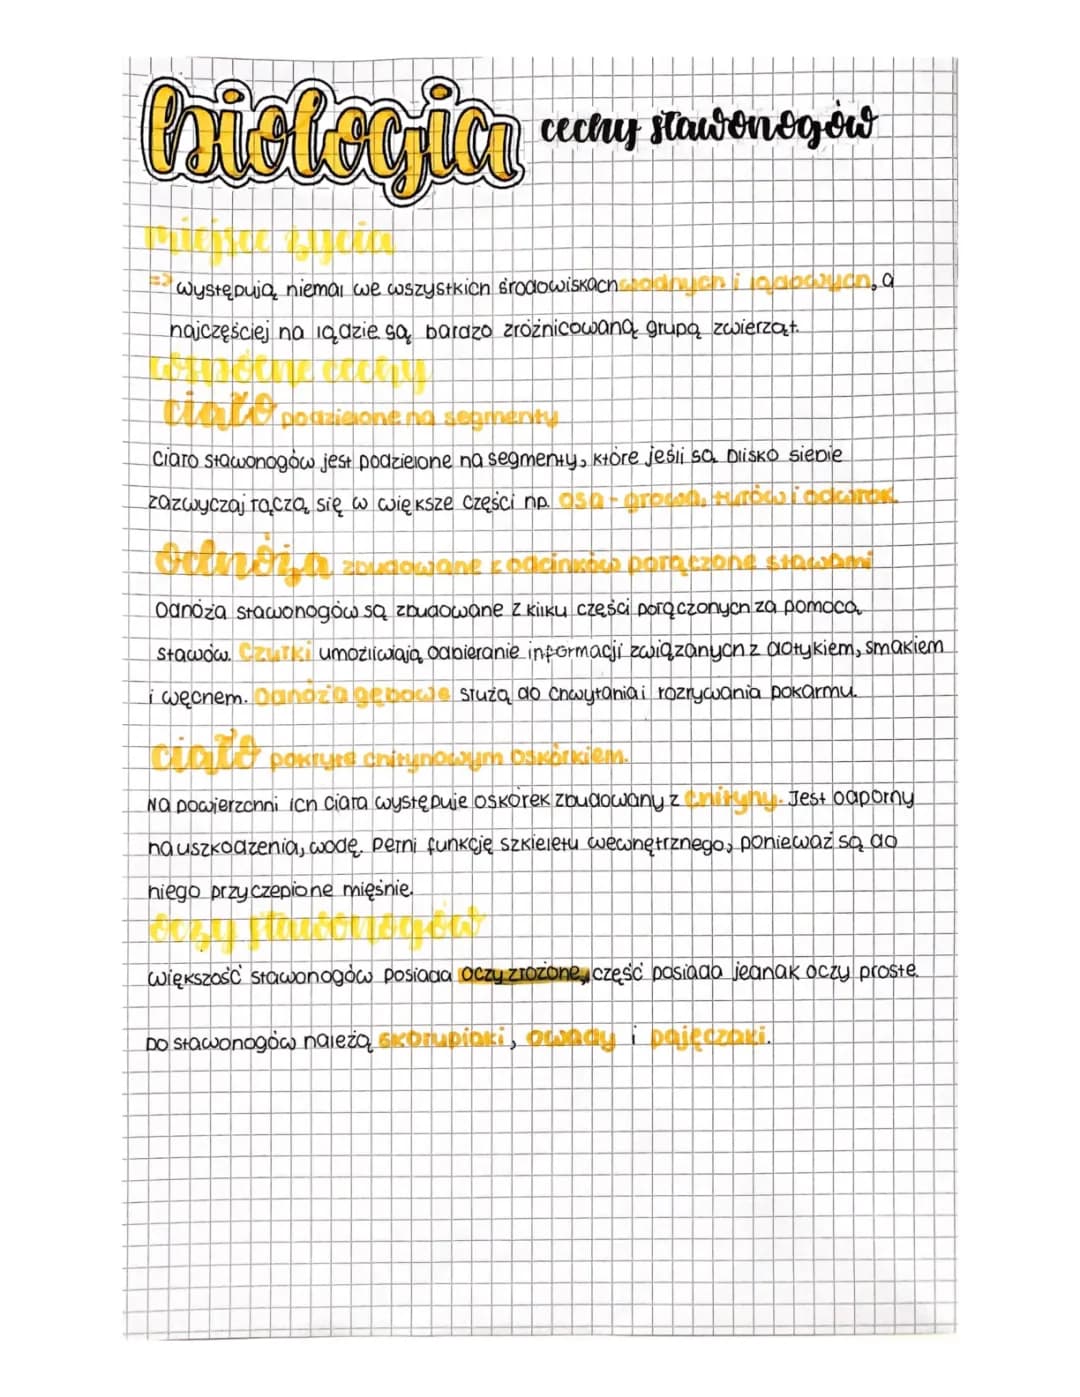 biologia cechy stawonogów
miejsce życia
=> występują niemal we wszystkich środowiskach wodnych i lądowych, a
najczęściej na lądzie są bardzo zróżnicowaną grupą zwierząt.
wspólne cechy
ciało podzielone na segmenty
Ciało stawonogów jest podzielone na segmenty, które jeśli są blisko siebie
zazwyczaj łączą się w większe części np. osa - głowa, tułów i odwłok.
Odnóża zbudowane z odcinków połączone stawami
Odnóża stawonogów są zbudowane z kilku części połączonych za pomocą
stawów. Czułki umożliwiają odbieranie informacji związanych z dotykiem, smakiem
i węchem. Odnóża gębowe służą do chwytania i rozrywania pokarmu.
ciało pokryte chitynowym oskórkiem.
Na powierzchni ich ciała występuje oskórek zbudowany z chityny. Jest odporny
na uszkodzenia, wodę. Pełni funkcję szkieletu wewnętrznego, ponieważ są do
niego przyczepione mięśnie.
oczy stawonogów
większość stawonogów posiada oczy złożone, część posiada jednak oczy proste.
Do stawonogów należą skorupiaki, owady i pajęczaki.